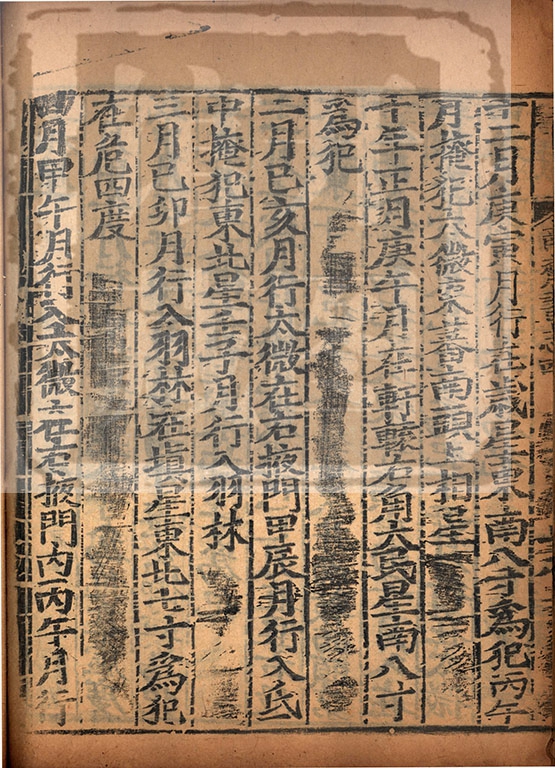 十二月庚寅月行在歲星東南八寸爲犯丙午
月掩犯太微東蕃南頭上相星
十年正月庚午月在軒轅右角大民星南八寸
爲犯
二月己亥月行太微在右掖門甲辰月行入氐
中掩犯東北星壬子月行入羽林
三月己卯月行入羽林在填星東北七寸爲犯
在危四度
四月甲午月行入太微在右掖門內丙午月行